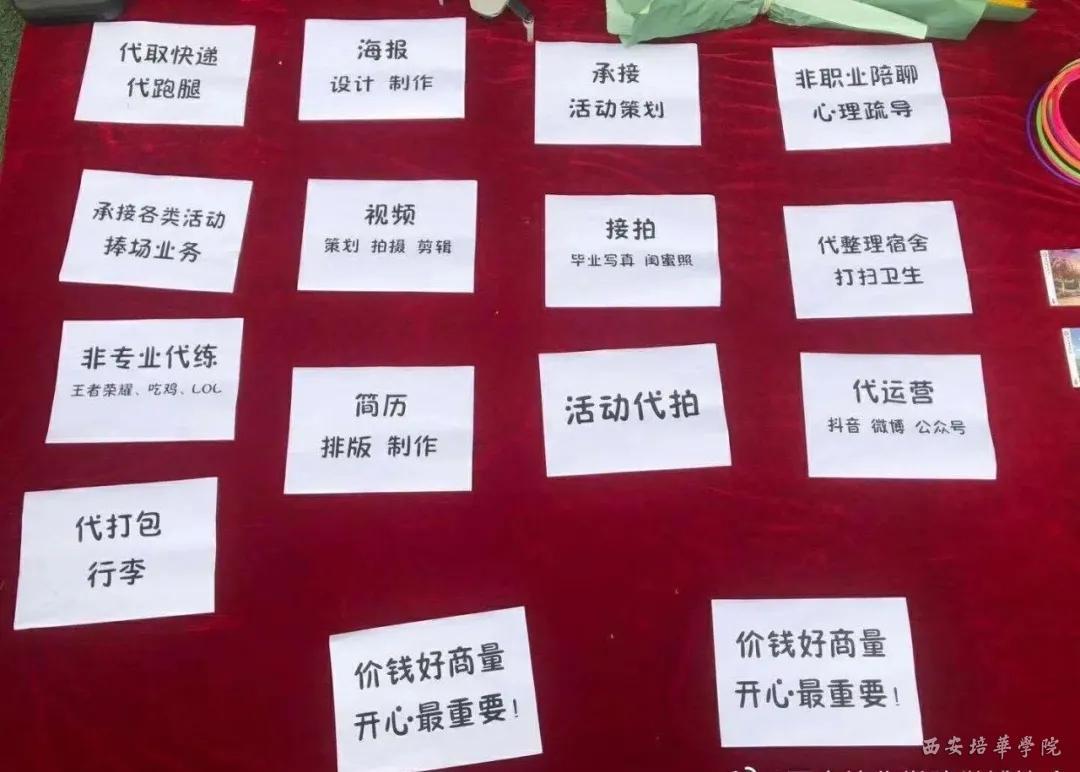 代取快递
代跑腿
海报
设计 制作
承接
活动策划
非职业陪聊
心理疏导
承接各类活动
捧场业务
视频
策划 拍摄 剪辑
接拍
毕业写真 闺蜜照
代整理宿舍
打扫卫生
非专业代练
王者荣耀、吃鸡、LOL
简历
排版 制作
活动代拍
代运营
抖音 微博 公众号
代打包
行李
价钱好商量
开心最重要!
价钱好商量
开心最重要!
西安培華學院